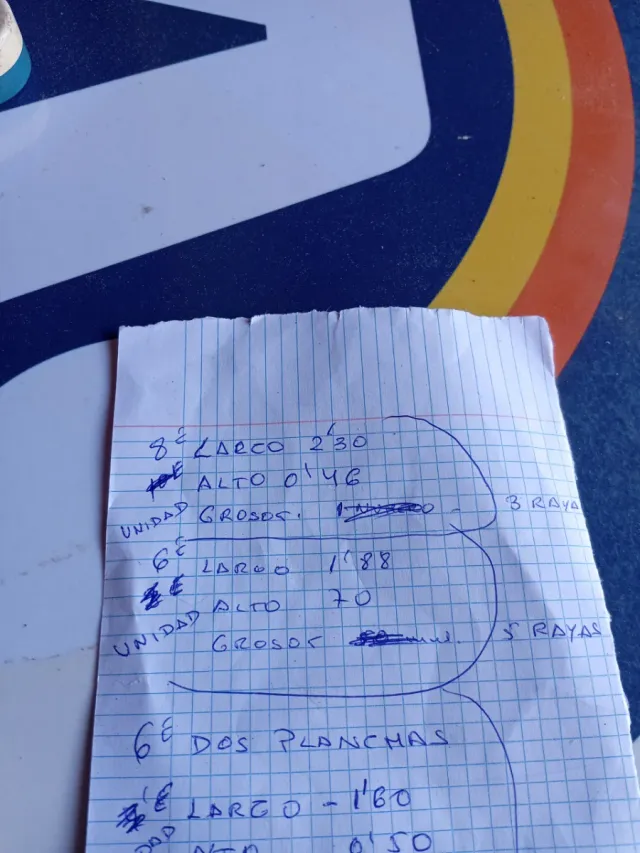 8€ LARGO 2'30
€ ALTO 0'46
UNIDAD GROSOR.
3 RAYA
6€ LARGO 1'88
€ ALTO 70
UNIDAD GROSOR
5 RAYAS
6€ DOS PLANCHAS
€ LARGO - 1'60
ALTO 0'50